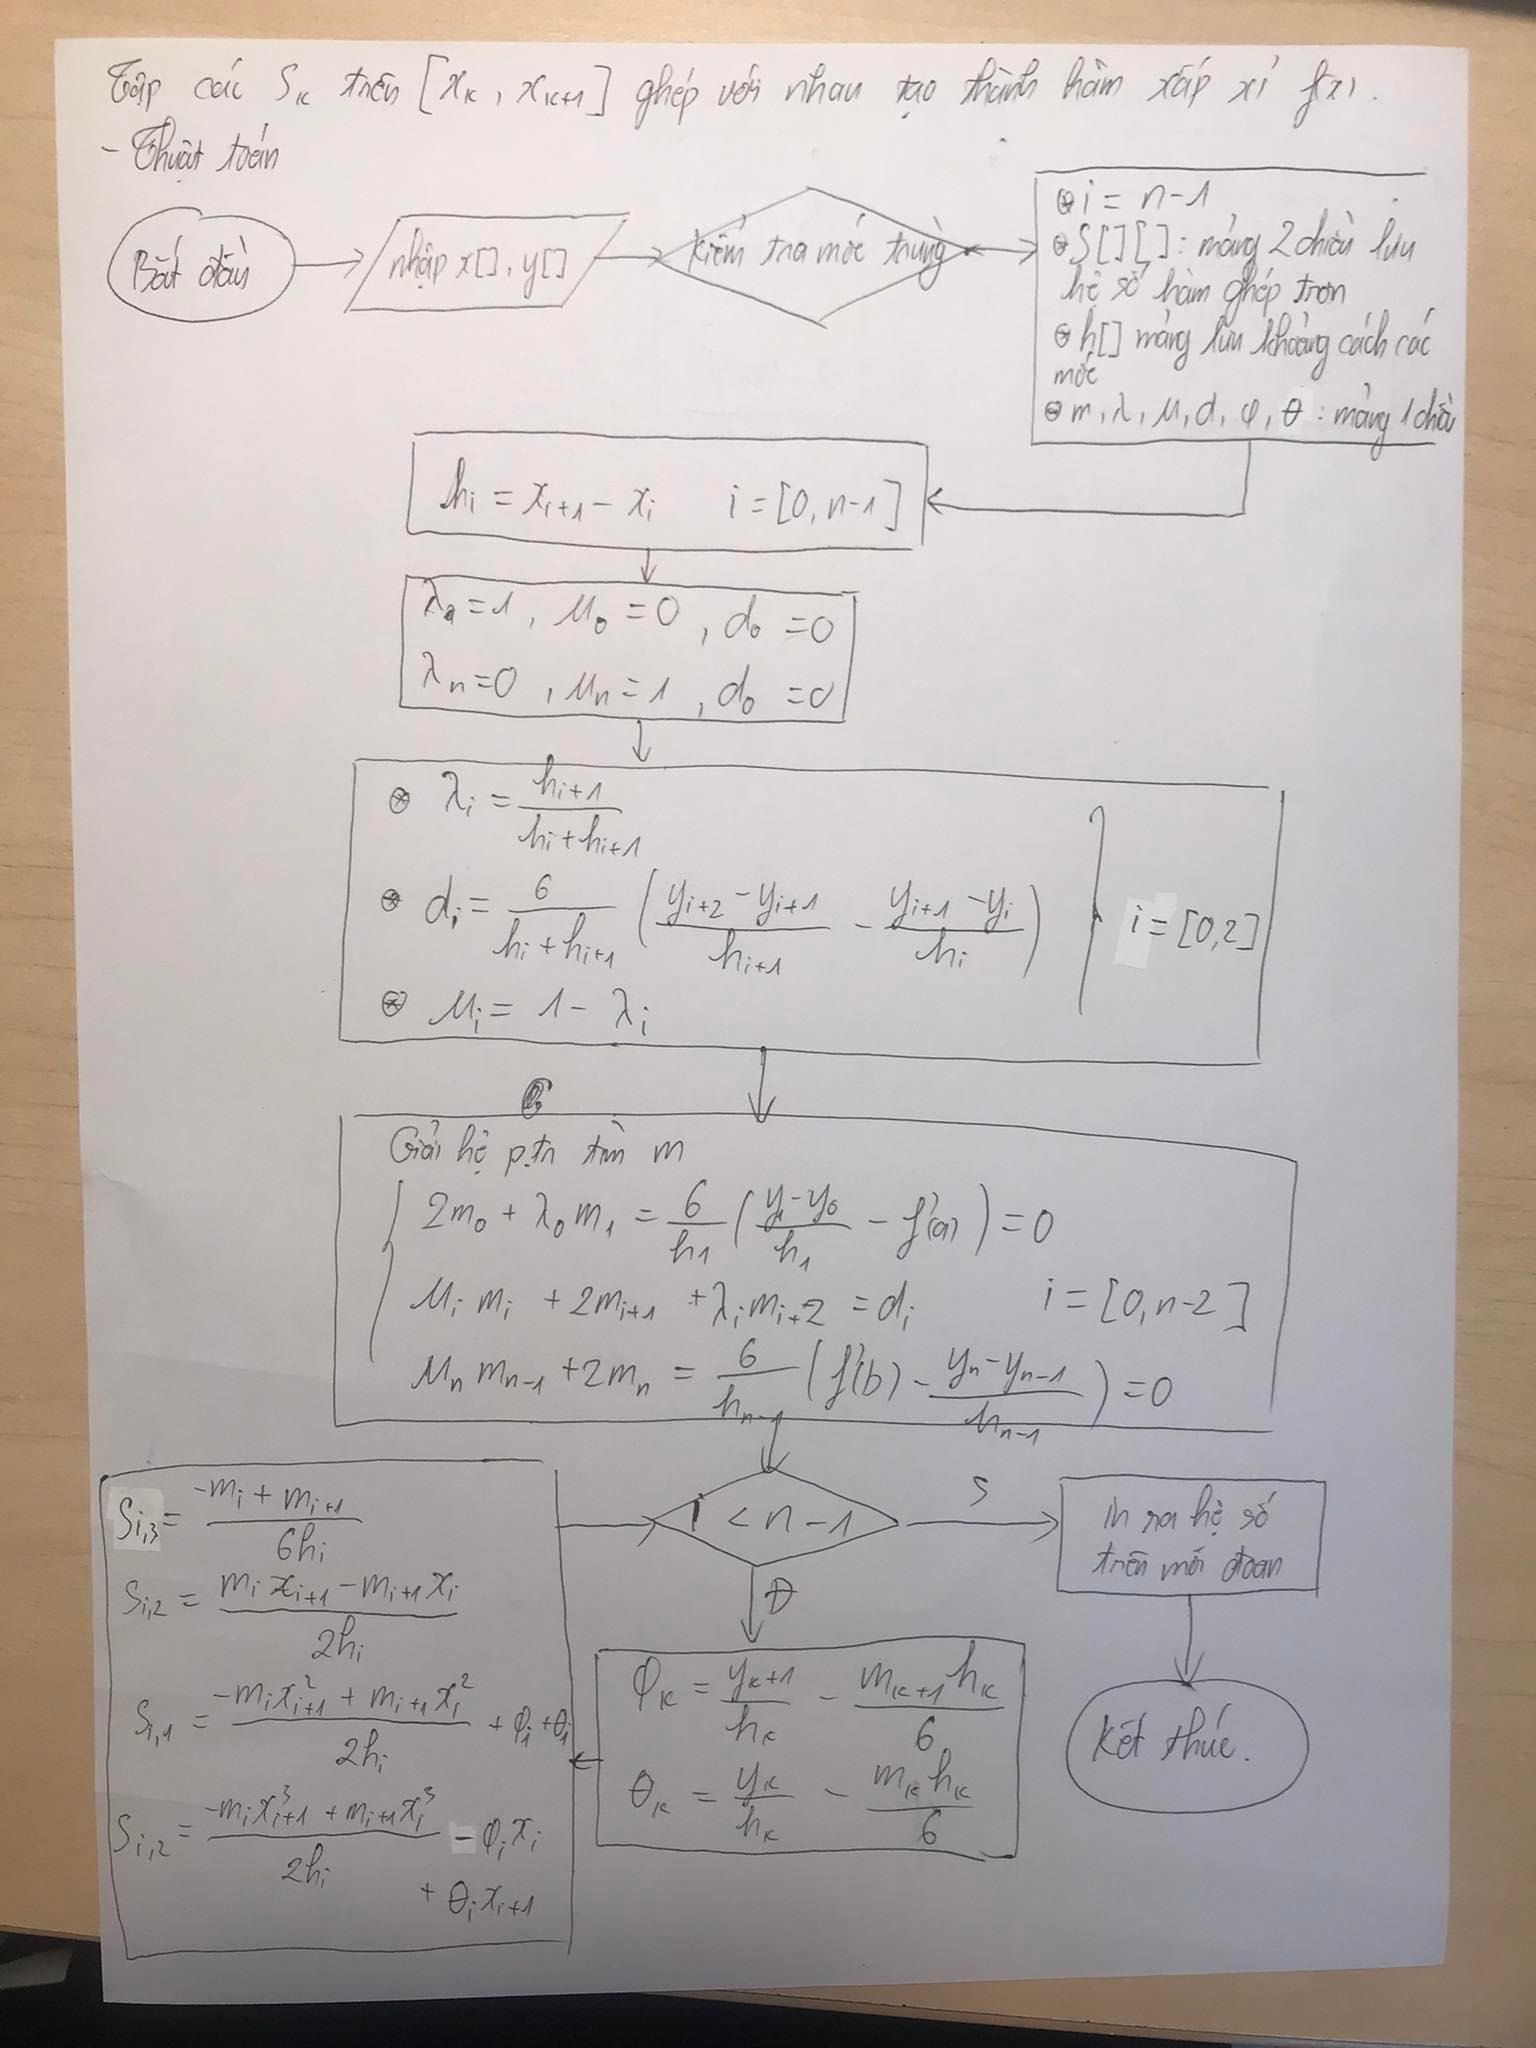 Tập các Sₖ trên [xₖ, xₖ₊₁] ghép với nhau tạo thành hàm xấp xỉ f(x).
- Thuật toán
Bắt đầu
nhập x[], y[]
kiểm tra mốc trùng
⊛ i = n-1
⊛ S[][]: mảng 2 chiều lưu
hệ số hàm ghép trơn
⊛ h[] mảng lưu khoảng cách các
mốc
⊛ m, λ, μ, d, φ, θ : mảng 1 chiều
hᵢ = xᵢ₊₁ - xᵢ i = [0, n-1]
λ₀ = 1, μ₀ = 0, d₀ = 0
λₙ = 0, μₙ = 1, d₀ = 0
⊛ λᵢ = hᵢ₊₁ / (hᵢ + hᵢ₊₁)
⊛ dᵢ = 6 / (hᵢ + hᵢ₊₁) ( (yᵢ₊₂ - yᵢ₊₁) / hᵢ₊₁ - (yᵢ₊₁ - yᵢ) / hᵢ )
i = [0,2]
⊛ μᵢ = 1 - λᵢ
Giải hệ p.tr tìm m
2m₀ + λ₀m₁ = 6/h₁ ( (y₁ - y₀)/h₁ - f'(a) ) = 0
μᵢ mᵢ + 2mᵢ₊₁ + λᵢ mᵢ₊₂ = dᵢ i = [0, n-2]
μₙ mₙ₋₁ + 2mₙ = 6/hₙ₋₁ ( f'(b) - (yₙ - yₙ₋₁)/hₙ₋₁ ) = 0
i < n-1
S
in ra hệ số
trên mỗi đoạn
Kết thúc.
Đ
φₖ = yₖ₊₁/hₖ - mₖ₊₁hₖ/6
θₖ = yₖ/hₖ - mₖhₖ/6
Sᵢ,₃ = (-mᵢ + mᵢ₊₁) / 6hᵢ
Sᵢ,₂ = (mᵢ xᵢ₊₁ - mᵢ₊₁ xᵢ) / 2hᵢ
Sᵢ,₁ = (-mᵢx²ᵢ₊₁ + mᵢ₊₁x²ᵢ) / 2hᵢ + φᵢ + θᵢ
Sᵢ,₂ = (-mᵢx³ᵢ₊₁ + mᵢ₊₁x³ᵢ) / 2hᵢ - φᵢxᵢ
+ θᵢxᵢ₊₁